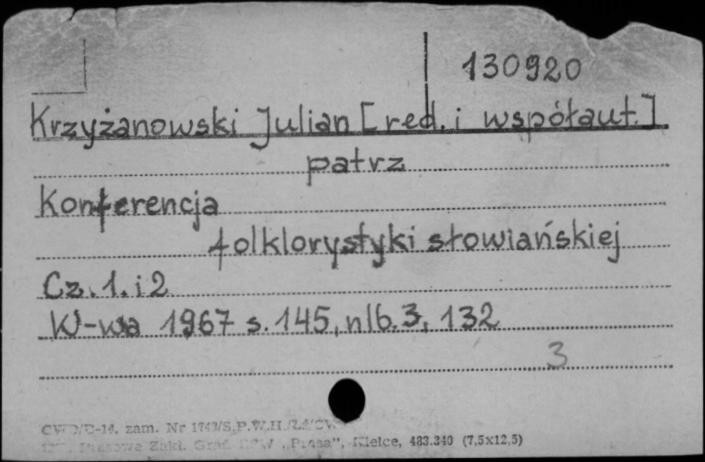 130920
Krzyżanowski Julian [red. i współaut.]
patrz
Konferencja
folklorystyki słowiańskiej
Cz. 1. i 2
W-wa 1967 s. 145, nlb. 3, 132
3
zam. Nr
Zakł. Graf. „Prasa”, Kielce, 483.340 (7,5x12,5)